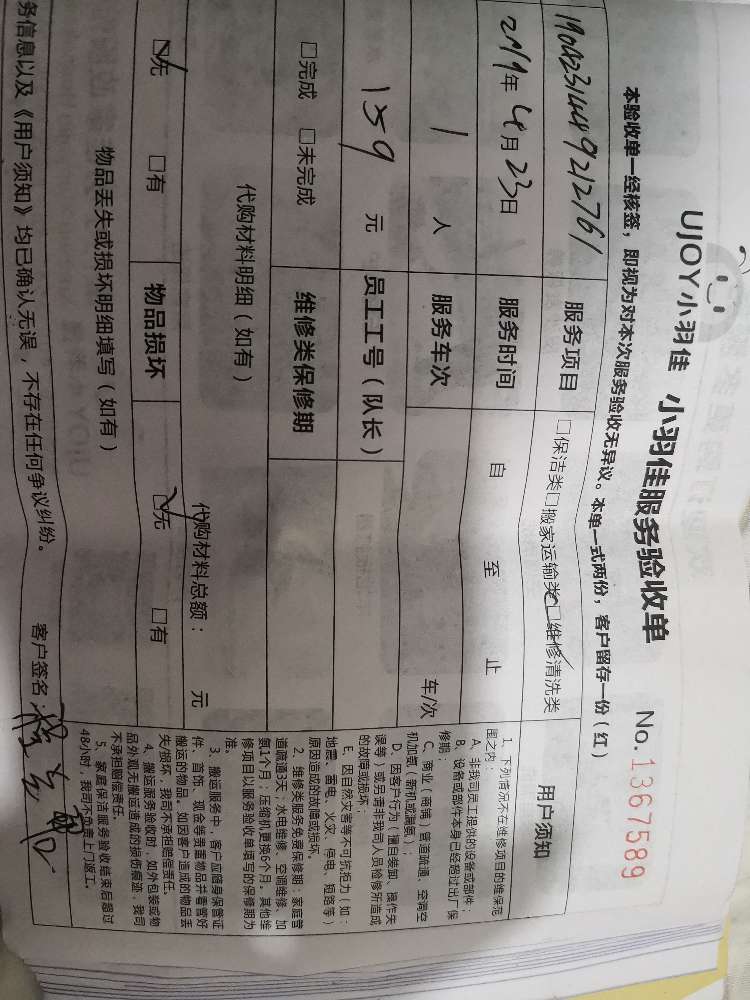 UJOY小羽佳 小羽佳服务验收单 No. 1367589
本验收单一经核签，即视为对本次服务验收无异议。本单一式两份，客户留存一份（红）
服务项目 □保洁类□搬家运输类☑维修清洗类
2019年4月23日 服务时间 自 至 止
1人 服务车次 车/次
159元 员工工号（队长）
□完成 □未完成 维修类保修期
代购材料明细（如有） 代购材料总额： 元
☑无 □有 物品损坏 ☑无 □有
物品丢失或损坏明细填写（如有）
务信息以及《用户须知》均已确认无误，不存在任何争议纠纷。 客户签名:
用户须知
1、下列情况不在维修项目的维保范
围之内：
A、非我司员工提供的设备或部件；
B、设备或部件本身已经超过出厂保
修期；
C、商业（商铺）管道疏通、空调空
机加氨（新机或漏氨）；
D、因客户行为（擅自装卸、操作失
误等）或另请非我司人员检修所造成
的故障或损坏；
E、因自然灾害等不可抗拒力（如：
地震、雷电、火灾、停电、短路等）
原因造成的故障或损坏。
2、维修类服务免费保修期：家庭管
道疏通3天；水电维修、空调维修、加
氨1个月；压缩机更换6个月。其他维
修项目以服务验收单填写的保修期为
准。
3、搬运服务中，客户应随身保管证
件、首饰、现金等贵重物品并看管好
搬运的物品。如因客户造成的物品丢
失/损坏，我司不承担赔偿责任。
4、搬运服务验收时，如外包装或物
品外观无搬运造成的损伤痕迹，我司
不承担赔偿责任。
5、家庭保洁服务验收结束后超过
48小时，我司不负责上门返工。